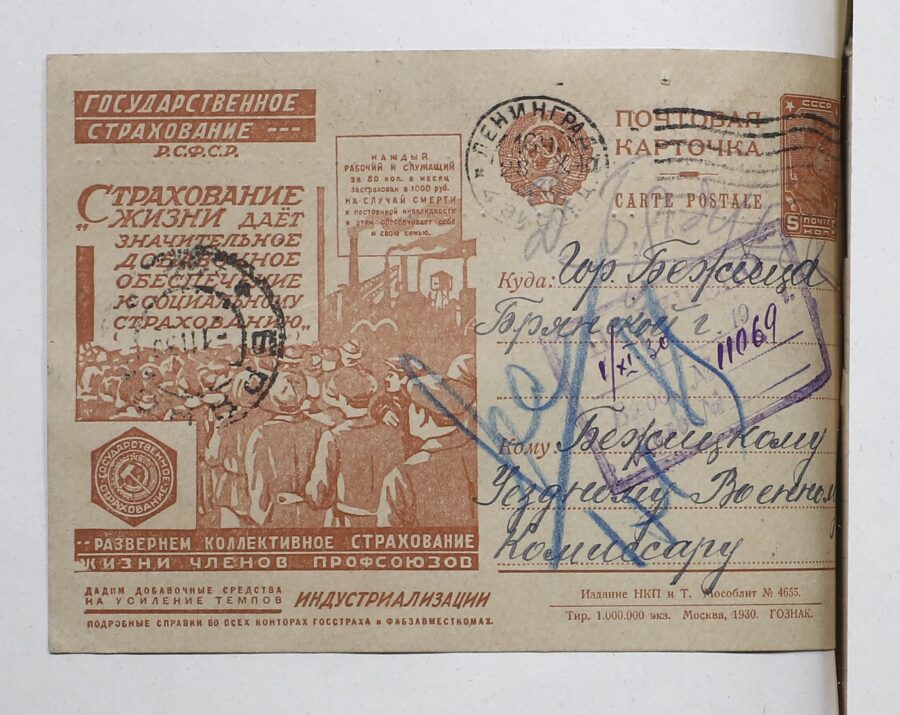 ГОСУДАРСТВЕННОЕ
СТРАХОВАНИЕ
Р.С.Ф.С.Р.
„СТРАХОВАНИЕ
ЖИЗНИ ДАЁТ
ЗНАЧИТЕЛЬНОЕ
ДОБАВОЧНОЕ
ОБЕСПЕЧЕНИЕ
К СОЦИАЛЬНОМУ
СТРАХОВАНИЮ„
КАЖДЫЙ
РАБОЧИЙ И СЛУЖАЩИЙ
за 80 коп. в месяц
застрахован в 1000 руб.
НА СЛУЧАЙ СМЕРТИ
и постоянной инвалидности
и этим обеспечивает себя
и свою семью.
ГОСУДАРСТВЕННОЕ
СТРАХОВАНИЕ
--РАЗВЕРНЕМ КОЛЛЕКТИВНОЕ СТРАХОВАНИЕ
ЖИЗНИ ЧЛЕНОВ ПРОФСОЮЗОВ
ДАДИМ ДОБАВОЧНЫЕ СРЕДСТВА
НА УСИЛЕНИЕ ТЕМПОВ ИНДУСТРИАЛИЗАЦИИ
ПОДРОБНЫЕ СПРАВКИ ВО ВСЕХ КОНТОРАХ ГОССТРАХА и ФАБЗАВМЕСТКОМАХ.
ЛЕНИНГРАД
ПОЧТОВАЯ
КАРТОЧКА
CARTE POSTALE
СССР
5 ПОЧТА
КОП.
Куда: Гор. Бежица
Брянской г.
19
1/XI 30
11069
Кому: Бежицкому
Уездному Военном
Комиссару
Издание НКП и Т. Мособлит № 4655.
Тир. 1.000.000 экз. Москва, 1930. ГОЗНАК.